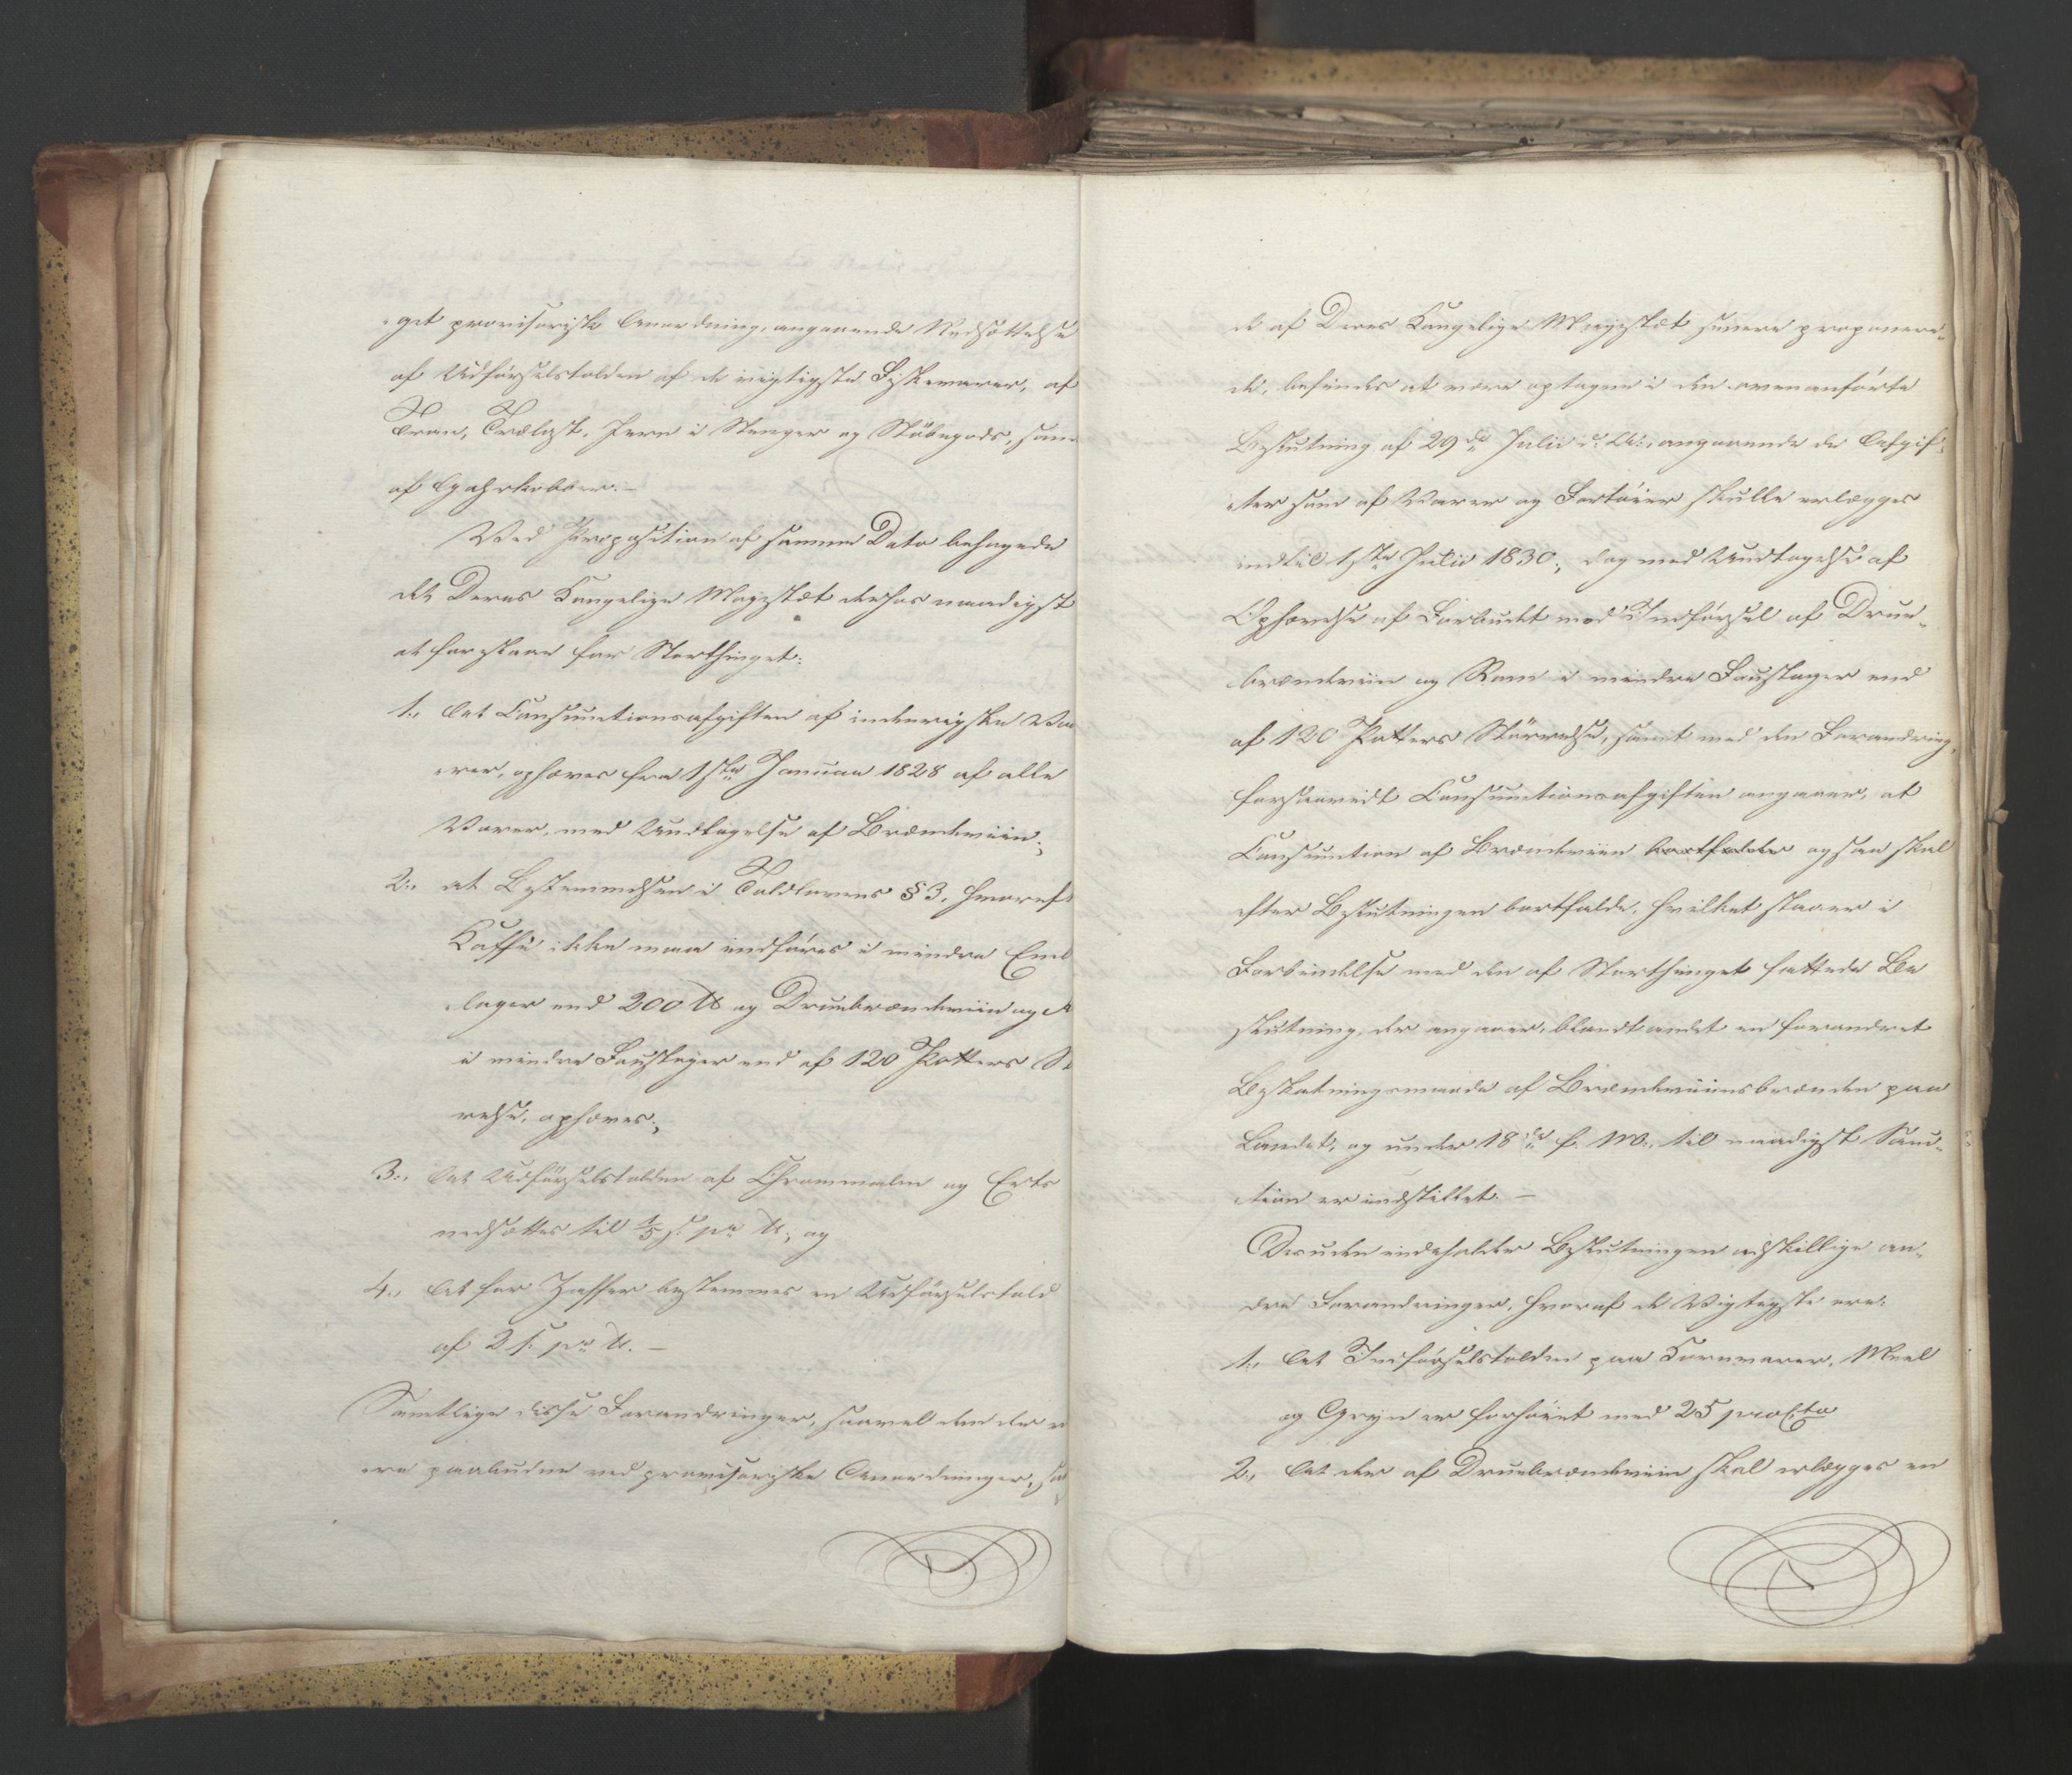 get provisorisk Anordning, angaaende Nedsættelse
af Udførselstolden af de vigtigste Fiskevarer, af
Tran, Trælast, Jern i Stænger og Støbegods, sam
af Gahrkobber.—
Ved Proposition af samme Dato behagede
det Deres Kongelige Majestæt derhos naadigst
at foreslaae for Storthinget:
1., At Consumtionsafgiften af indenrigske Va
rer, ophæves fra 1ste Januar 1828 af alle
Varer, med Undtagelse af Brændeviin;
2., at Bestemmelsen i Toldlovens § 3, hvoreft
Kaffe ikke maa indføres i mindre Emb
lager end 200 ℔ og Druebrændeviin og R
i mindre Faustager end af 120 Potters St
relse, ophæves;
3., At Udførselstolden af Chrommalm og Erts
nedsættes til 1/5 s. pr ℔.; og
4., At for Zaffer bestemmes en Udførselstold
af 2 s. pr ℔. —
Samtlige disse Forandringer, saavel den der
ere paabudne ved provisoriske Anordninger, so
de af Deres Kongelige Majestæt senere proponere-
de, befindes at være optagne i den ovenanførte
Beslutning af 29de Julii d: A:, angaaende de Afgif-
ter som af Varer og Fartøier skulle erlægges
indtil 1ste Julii 1830; dog med Undtagelse af
Ophævelse af Forbudet mod Indførsel af Drue-
brændeviin og Rom i mindre Faustager end
af 120 Potters Størrelse, samt med den Forandring,
forsaavidt Consumtionsafgiften angaaer, at
Consumtion af Brændeviin bortfalder ogsaa skal
efter Beslutningen bortfalde, hvilket staaer i
Forbindelse med den af Storthinget fattede Be
slutning, der angaaer, blandt andet en forandret
Beskatningsmaade af Brændeviinsbrænden paa
Landet, og under 18de f. M., til naadigst Sanc-
tion er indstillet. —
Desuden indeholder Beslutningen adskillige an-
dre Forandringer, hvoraf de Vigtigste ere:
1., At Indførselstolden paa Kornvarer, Meel
og Gryn er forhøiet med 25 proCto
2., At der af Druebrændeviin skal erlægges en